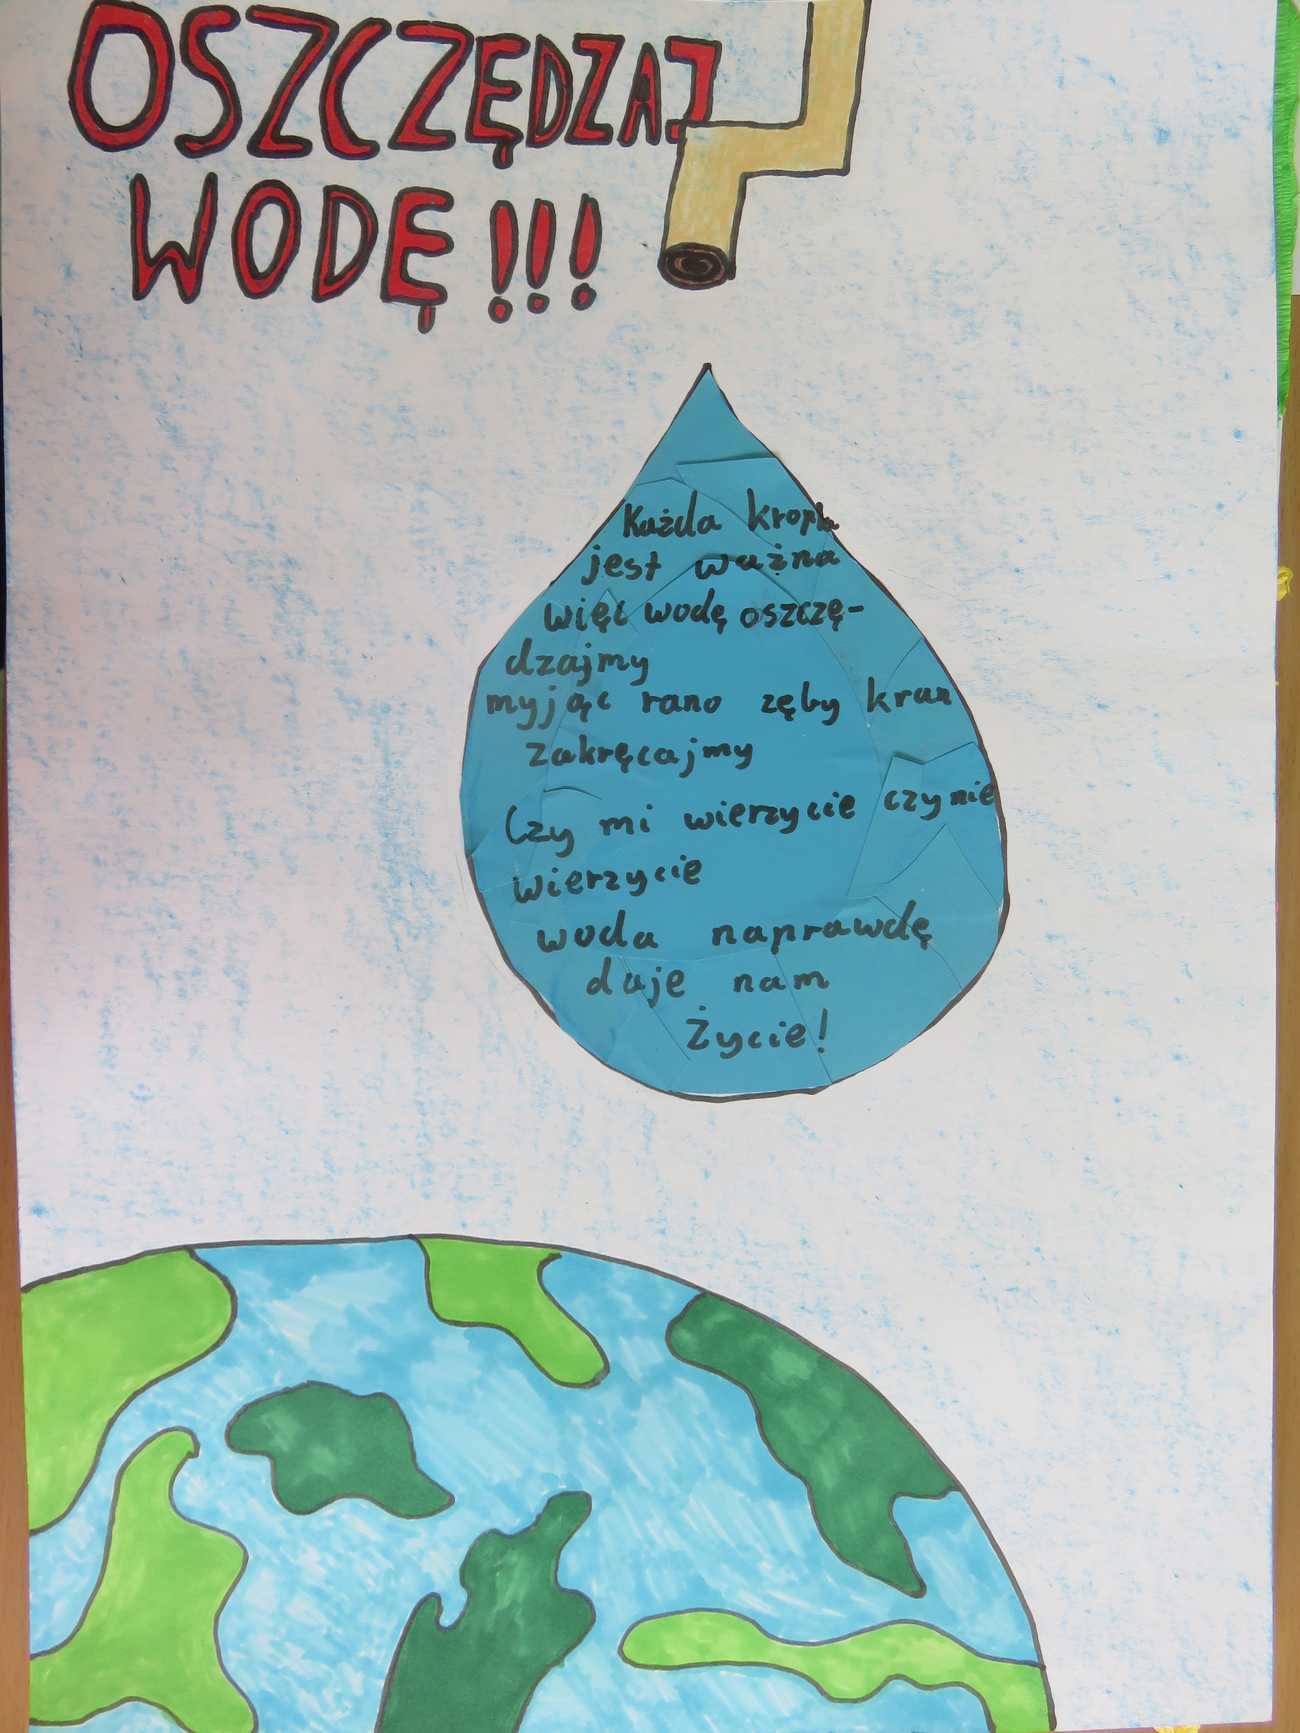 OSZCZĘDZAJ
WODĘ!!!
Każda kropla
jest ważna
więc wodę oszczę-
dzajmy
myjąc rano zęby kran
zakręcajmy
Czy mi wierzycie czy nie
wierzycie
woda naprawdę
daje nam
Życie!